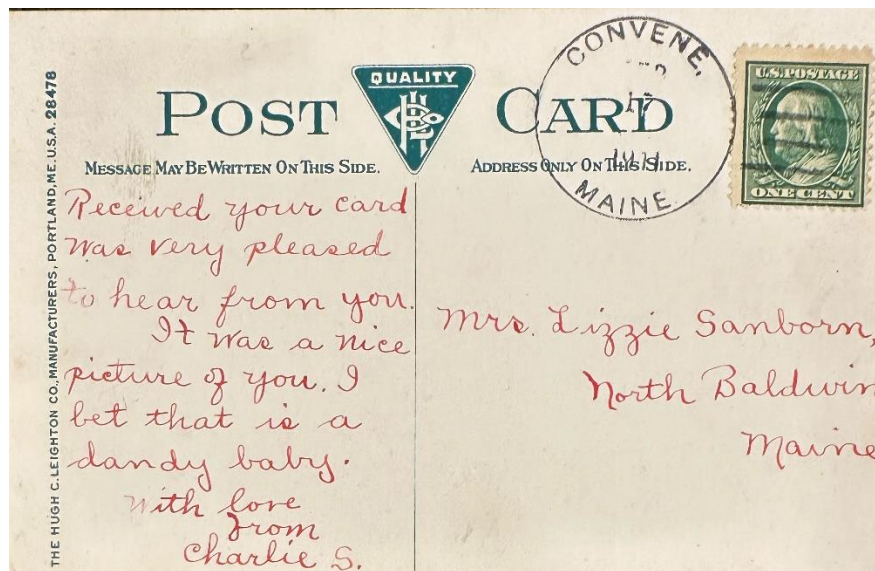 THE HUGH C. LEIGHTON CO., MANUFACTURERS, PORTLAND, ME. U.S.A. 28478
POST CARD
QUALITY
MESSAGE MAY BE WRITTEN ON THIS SIDE.
ADDRESS ONLY ON THIS SIDE.
CONVENE,
17
MAINE
U.S. POSTAGE
ONE CENT
Received your card
was very pleased
to hear from you.
It was a nice
picture of you. I
bet that is a
dandy baby.
With love
from
Charlie S.
Mrs. Lizzie Sanborn,
North Baldwin
Maine